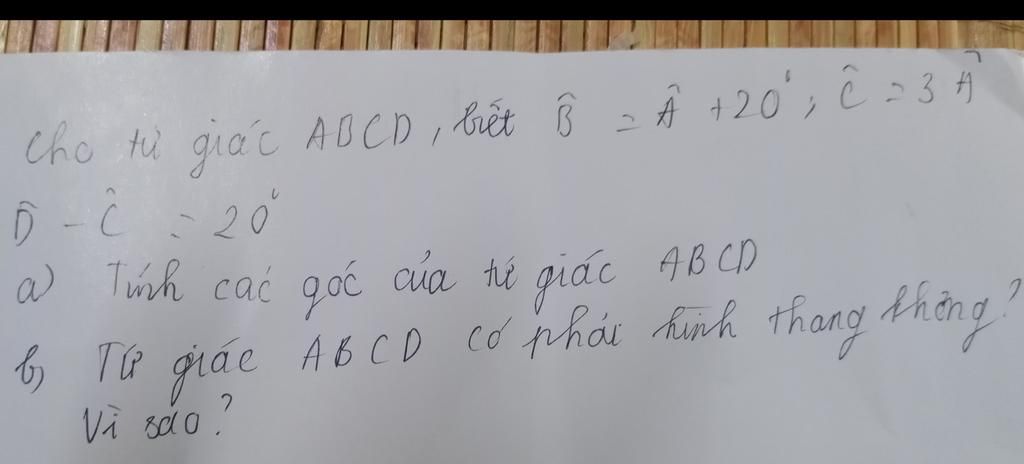 Cho tứ giác ABCD, biết B̂ = Â + 20°; Ĉ = 3Â
D̂ - Ĉ = 20°
a) Tính các góc của tứ giác ABCD
b) Tứ giác ABCD có phải hình thang không?
Vì sao?